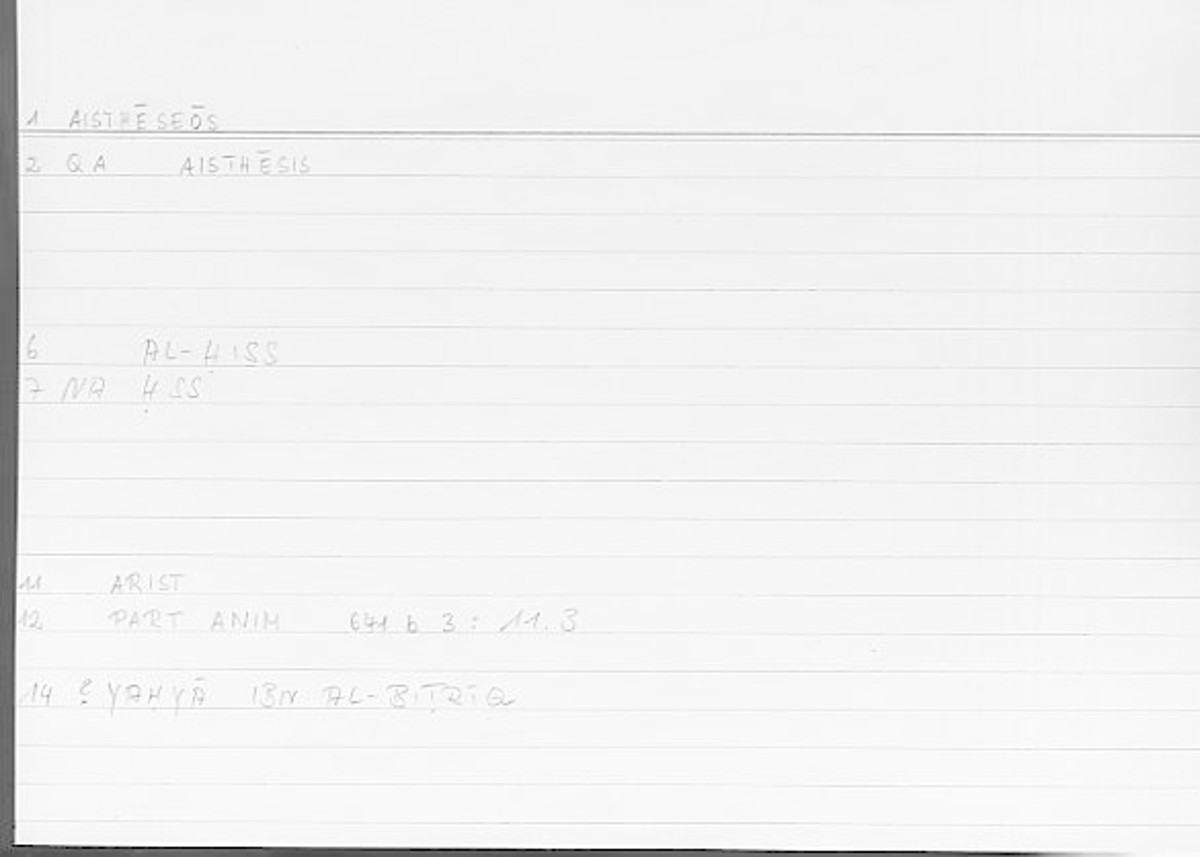 1 AISTHĒSEŌS
2 QA AISTHĒSIS
6 AL-ḤISS
7 NA ḤSS
11 ARIST
12 PART ANIM 641 b 3 : 11.3
14 ? YAḤYĀ IBN AL-BIṬRĪQ